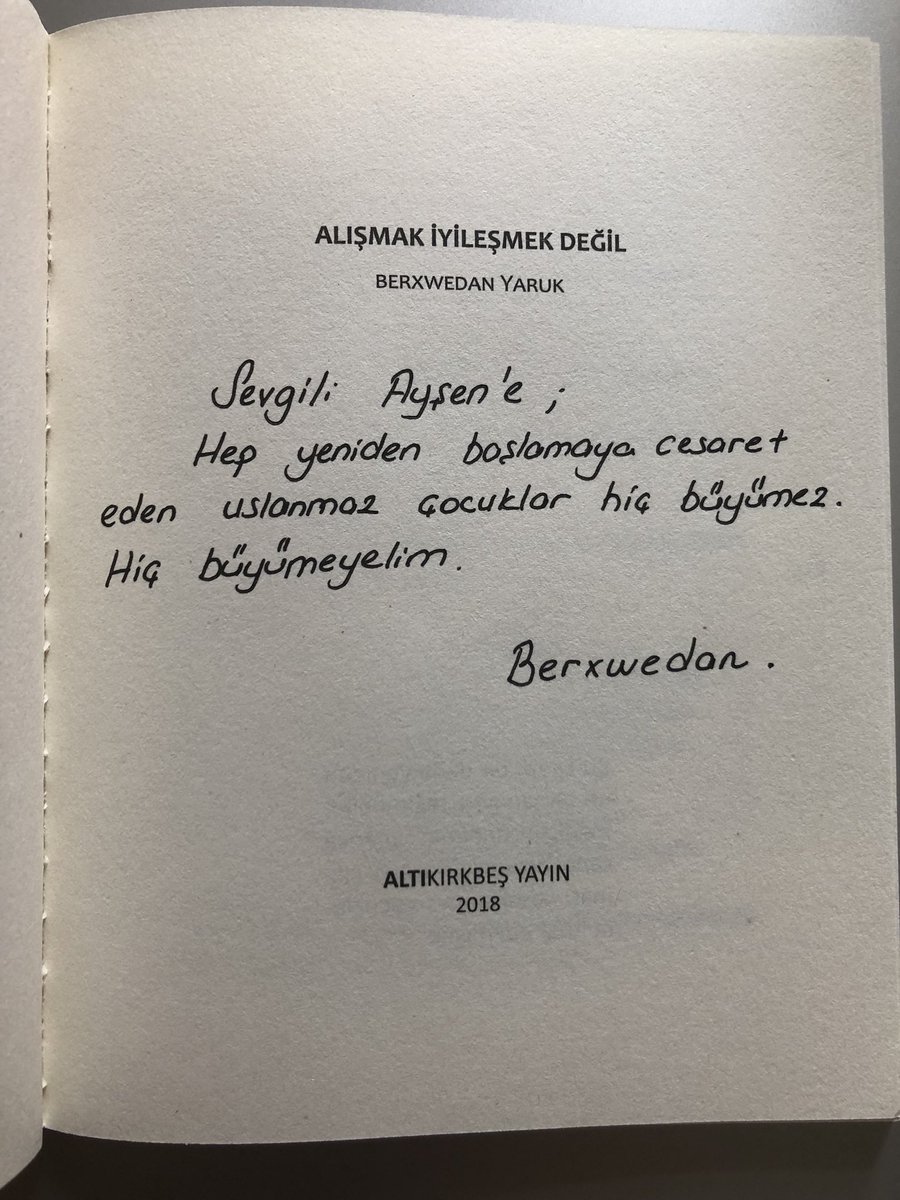 ALIŞMAK İYİLEŞMEK DEĞİL
BERXWEDAN YARUK
Sevgili Ayşen'e ;
Hep yeniden başlamaya cesaret
eden uslanmaz çocuklar hiç büyümez.
Hiç büyümeyelim.
Berxwedan.
ALTIKIRKBEŞ YAYIN
2018